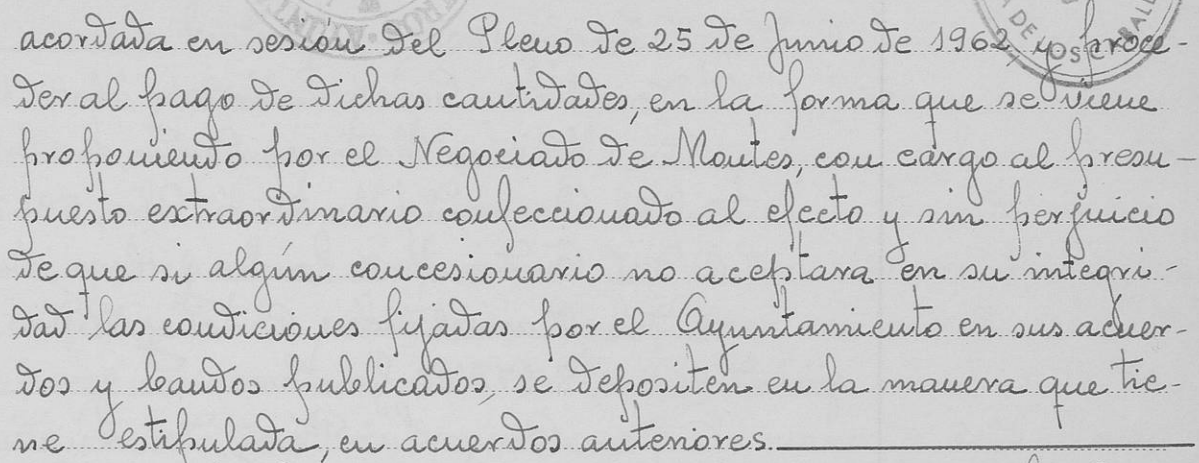 acordada en sesión del Pleno de 25 de Junio de 1962 y proce-
der al pago de dichas cantidades, en la forma que se viene
proponiendo por el Negociado de Montes, con cargo al presu-
puesto extraordinario confeccionado al efecto y sin perjuicio
de que si algún concesionario no aceptara en su integri-
dad las condiciones fijadas por el Ayuntamiento en sus acuer-
dos y bandos publicados, se depositen en la manera que tie-
ne estipulada, en acuerdos anteriores.